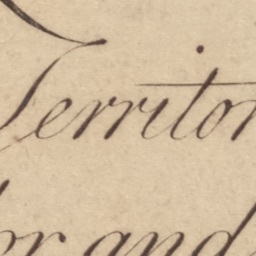 Territor
or and